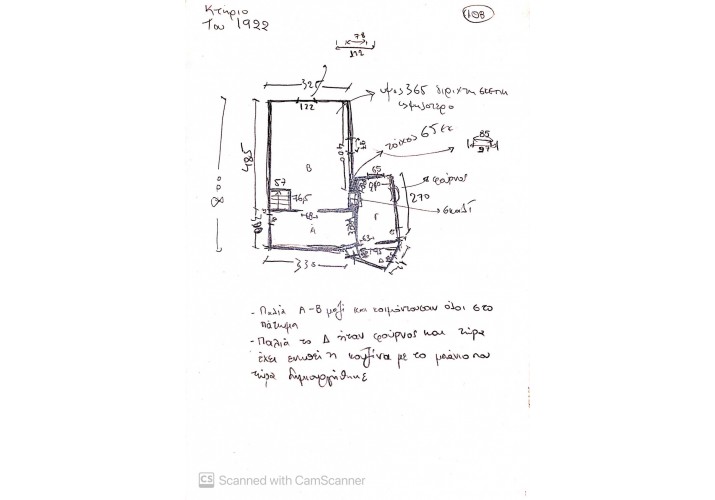 Κτήριο
Του 1922
108
78
122
320
υψος 365 διριχτη σκεπη
υψηλοτερο
122
τοίχος 65 εκ
85
57
485
400
Β
65
φούρνος
270
57
76,5
σκαλί
Α
Γ
63
Δ
330
- Παλιά Α-Β μαζί και κοιμόντουσαν όλοι στο
πάτωμα
- Παλιά το Δ ήταν φούρνος και τώρα
έχει ενωθεί η κουζίνα με το μπάνιο που
τώρα δημιουργήθηκε
CS Scanned with CamScanner